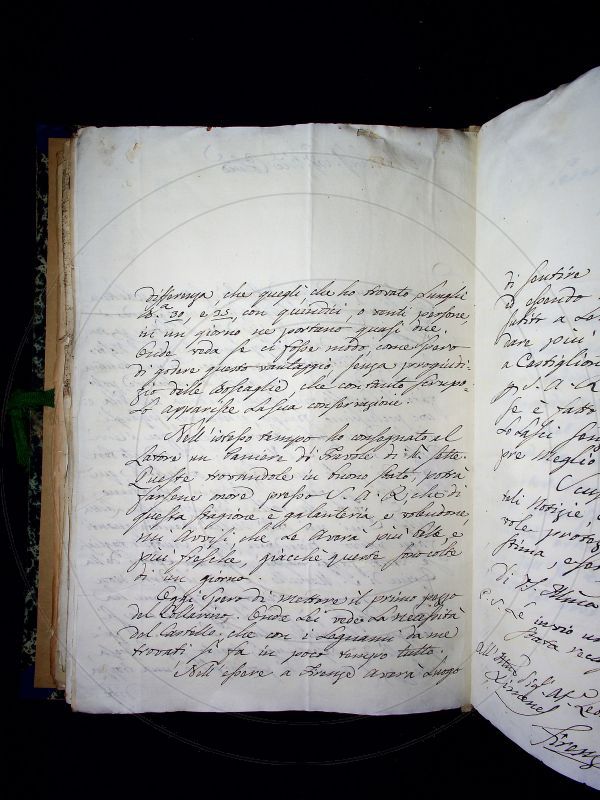 differenza, che quegli, che ho trovato lunghi
30, e 35, con quindici, o venti persone,
in un giorno ne portano quasi due.
Onde veda se ci fosse modo, come spero
di godere questo vantaggio, senza pregiudi-
zio delle Boscaglie che con tanto scrupo-
lo apparisce la sua conservazione.
Nell'istesso tempo ho consegnato al
Latore un Paniere di Fravole di
Queste trovandole in buono stato, potrà
farsene more presso S. A. R. che di
questa stagione è galanteria, e volendone,
mi avvisi, che le avarà più belle, e
più fresche, giacchè queste sono colte
di un giorno.
Oggi spero di mettere il primo pezzo
del Collarino. Onde Lei vede la necessità
del Castello, che con i Legnami da me
trovati si fa in poco tempo tutto.
Nell'essere a Firenze avara luogo
di sentire
ed essendo
subito a
dare più
a Castiglion
p. S. A. R
se è fatt
lo lasci
pre meglio
tali Notizie,
vole
stima, e
di V. S. Illma
P. S. Le invio un
Firenze